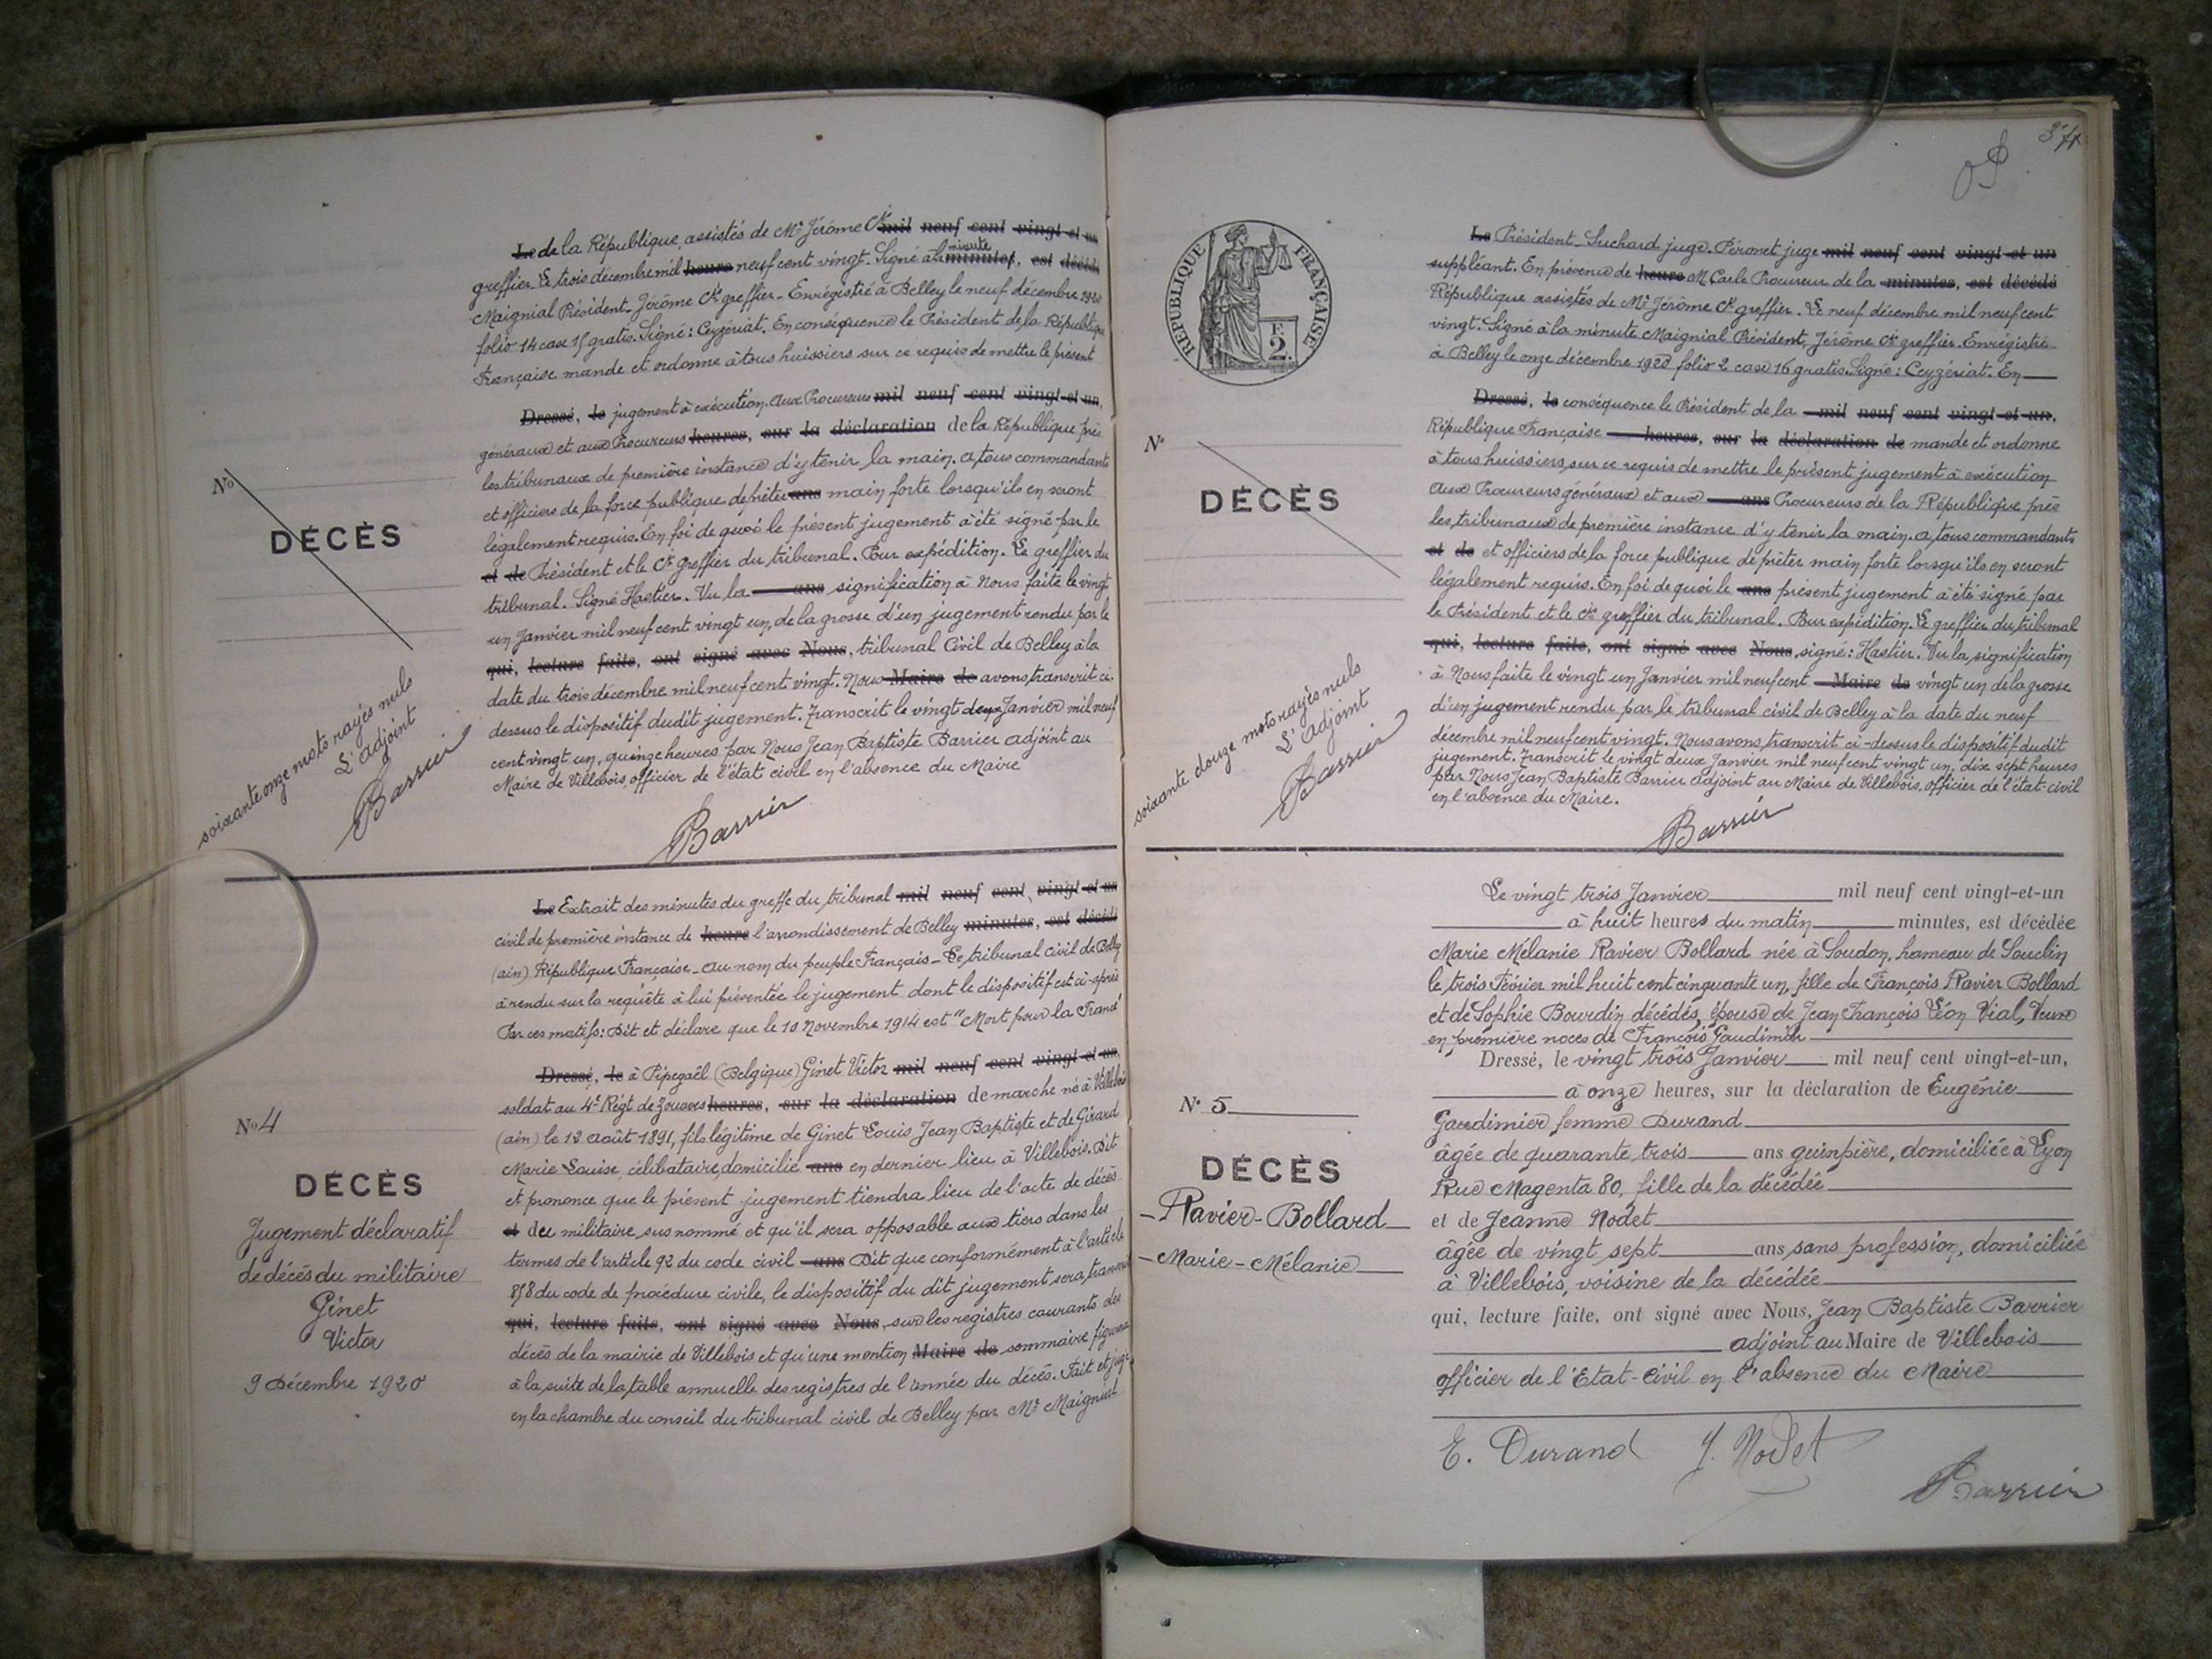 Le de la République, assistés de Mr Jérôme Cs mil neuf cent vingt-et-un
greffier. Le trois décembre mil heure neuf cent vingt. Signé à la minute minutes, est décédé
Maignial Président. Jérôme Cs greffier - Enregistré à Belley le neuf décembre 1920
folio 14 case 15 gratis. Signé: Ceyzériat. En conséquence le Président de la République
Française mande et ordonne à tous huissiers sur ce requis de mettre le présent
Dressé, le jugement à exécution. Aux Procureurs mil neuf cent vingt-et-un,
généraux et aux Procureurs heures, sur la déclaration de la République près
les tribunaux de première instance d'y tenir la main. a tous commandants
et officiers de la force publique de prêter ans main forte lorsqu'ils en seront
légalement requis. En foi de quoi le présent jugement à été signé par le
et de Président et le Cs greffier du tribunal. Pour expédition. Le greffier du
tribunal. Signé Hastier. Vu la ans signification à Nous faite le vingt
un Janvier mil neuf cent vingt un, de la grosse d'un jugement rendu par le
qui, lecture faite, ont signé avec Nous, tribunal Civil de Belley à la
date du trois décembre mil neuf cent vingt. Nous Maire de avons transcrit ci-
dessus le dispositif dudit jugement. Transcrit le vingt deux Janvier mil neuf
cent vingt un, quinze heures par Nous Jean Baptiste Barrier adjoint au
Maire de Villebois officier de l'état civil en l'absence du Maire
Barrier
No
DÉCÈS
soixante onze mots rayés nuls
L'adjoint
Barrier
No 4
DÉCÈS
Jugement déclaratif
de décès du militaire
Ginet
Victor
9 Décembre 1920
Le Extrait des minutes du greffe du tribunal mil neuf cent vingt-et-un
civil de première instance de heure l'arrondissement de Belley minutes, est décédé
(ain) République Française - Au nom du peuple Français - Le tribunal civil de Belley
à rendu sur la requête à lui présentée le jugement dont le dispositif est ci-après
Par ces motifs: Dit et déclare que le 10 Novembre 1914 est "Mort pour la France"
Dressé, le à Pipegaël (Belgique) Ginet Victor mil neuf cent vingt-et-un,
soldat au 4e Régt de Zouaves heures, sur la déclaration de marche né à Villebois
(ain) le 12 août 1891, fils légitime de Ginet Louis Jean Baptiste et de Girard
Marie Louise, célibataire, domicilié ans en dernier lieu à Villebois. Dit
et prononce que le présent jugement tiendra lieu de l'acte de décès
et du militaire susnommé et qu'il sera opposable aux tiers dans les
termes de l'article 92 du code civil ans Dit que conformément à l'article
858 du code de procédure civile, le dispositif du dit jugement sera transcrit
qui, lecture faite, ont signé avec Nous, sur les registres courants des
décès de la mairie de Villebois et qu'une mention Maire de sommaire figurera
à la suite de la table annuelle des registres de l'année du décès. Fait et jugé
en la chambre du conseil du tribunal civil de Belley par Mr Maignial
RÉPUBLIQUE FRANÇAISE
2
Le Président - Suchard juge. Péronet juge mil neuf cent vingt et un
suppléant. En présence de heure M. Carle Procureur de la minutes, est décédé
République assistés de Mr Jérôme Cs greffier. Le neuf décembre mil neuf cent
vingt. Signé à la minute Maignial Président, Jérôme Cs greffier. Enregistré
à Belley le onze décembre 1920 folio 2 case 16 gratis. Signé: Ceyzériat. En
Dressé, le conséquence le Président de la mil neuf cent vingt-et-un,
République Française heures, sur la déclaration de mande et ordonne
à tous huissiers sur ce requis de mettre le présent jugement à exécution
Aux Procureurs généraux et aux ans Procureurs de la République près
les tribunaux de première instance d'y tenir la main. a tous commandants
et de et officiers de la force publique de prêter main forte lorsqu'ils en seront
légalement requis. En foi de quoi le ans présent jugement à été signé par
le Président et le Cs greffier du tribunal. Pour expédition. Le greffier du tribunal
qui, lecture faite, ont signé avec Nous, signé: Hastier. Vu la signification
à Nous faite le vingt un Janvier mil neuf cent Maire de vingt un de la grosse
d'un jugement rendu par le tribunal civil de Belley à la date du neuf
décembre mil neuf cent vingt. Nous avons transcrit ci-dessus le dispositif dudit
jugement. Transcrit le vingt deux Janvier mil neuf cent vingt un, dix sept heures
par Nous Jean Baptiste Barrier adjoint au Maire de Villebois, officier de l'état-civil
en l'absence du Maire.
Barrier
No
DÉCÈS
soixante douze mots rayés nuls
L'adjoint
Barrier
No 5
DÉCÈS
Ravier-Bollard
Marie-Mélanie
Le vingt trois Janvier mil neuf cent vingt-et-un
à huit heures du matin minutes, est décédée
Marie Mélanie Ravier Bollard née à Soudon, hameau de Souclin
le trois Février mil huit cent cinquante un, fille de François Ravier Bollard
et de Sophie Bourdin décédés, épouse de Jean François Léon Vial, Veuve
en première noces de François Gaudimier
Dressé, le vingt trois Janvier mil neuf cent vingt-et-un,
à onze heures, sur la déclaration de Eugénie
Gaudimier femme Durand
âgée de quarante trois ans guimpière, domiciliée à Lyon
Rue Magenta 80, fille de la décédée
et de Jeanne Nodet
âgée de vingt sept ans sans profession, domiciliée
à Villebois, voisine de la décédée
qui, lecture faite, ont signé avec Nous, Jean Baptiste Barrier
adjoint au Maire de Villebois
officier de l'Etat-Civil en l'absence du Maire
E. Durand J. Nodet
Barrier